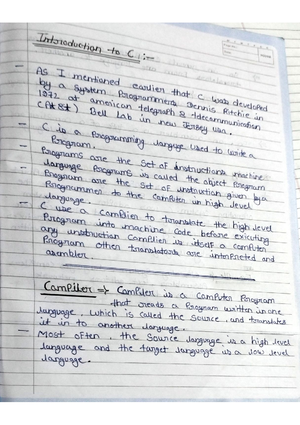 Introduction to C :-
As I mentioned earlier that C was developed
by a System Programmers Dennis Ritchie in
1972 at american telegraph & telecommunication
(At &t) Bell Lab in new Jersey usa.
- C is a Programming language used to write a
Program.
- Programs are the Set of instructions machine
language Programs is called the object Program
- Program are the Set of instruction given by a
Programmer to the Computer in high level
language.
- C use a Complier to translate the high level
Program into machine Code before executing
any instruction Complier is itself a computer
Program other translators are interpreted and
assembler
Compiler => Compiler is a Computer Program
that reads a Program written in one
language, which is called the Source, and translates
it in to another language.
- Most often, the Source language is a high level
language and the target language is a low level
language.